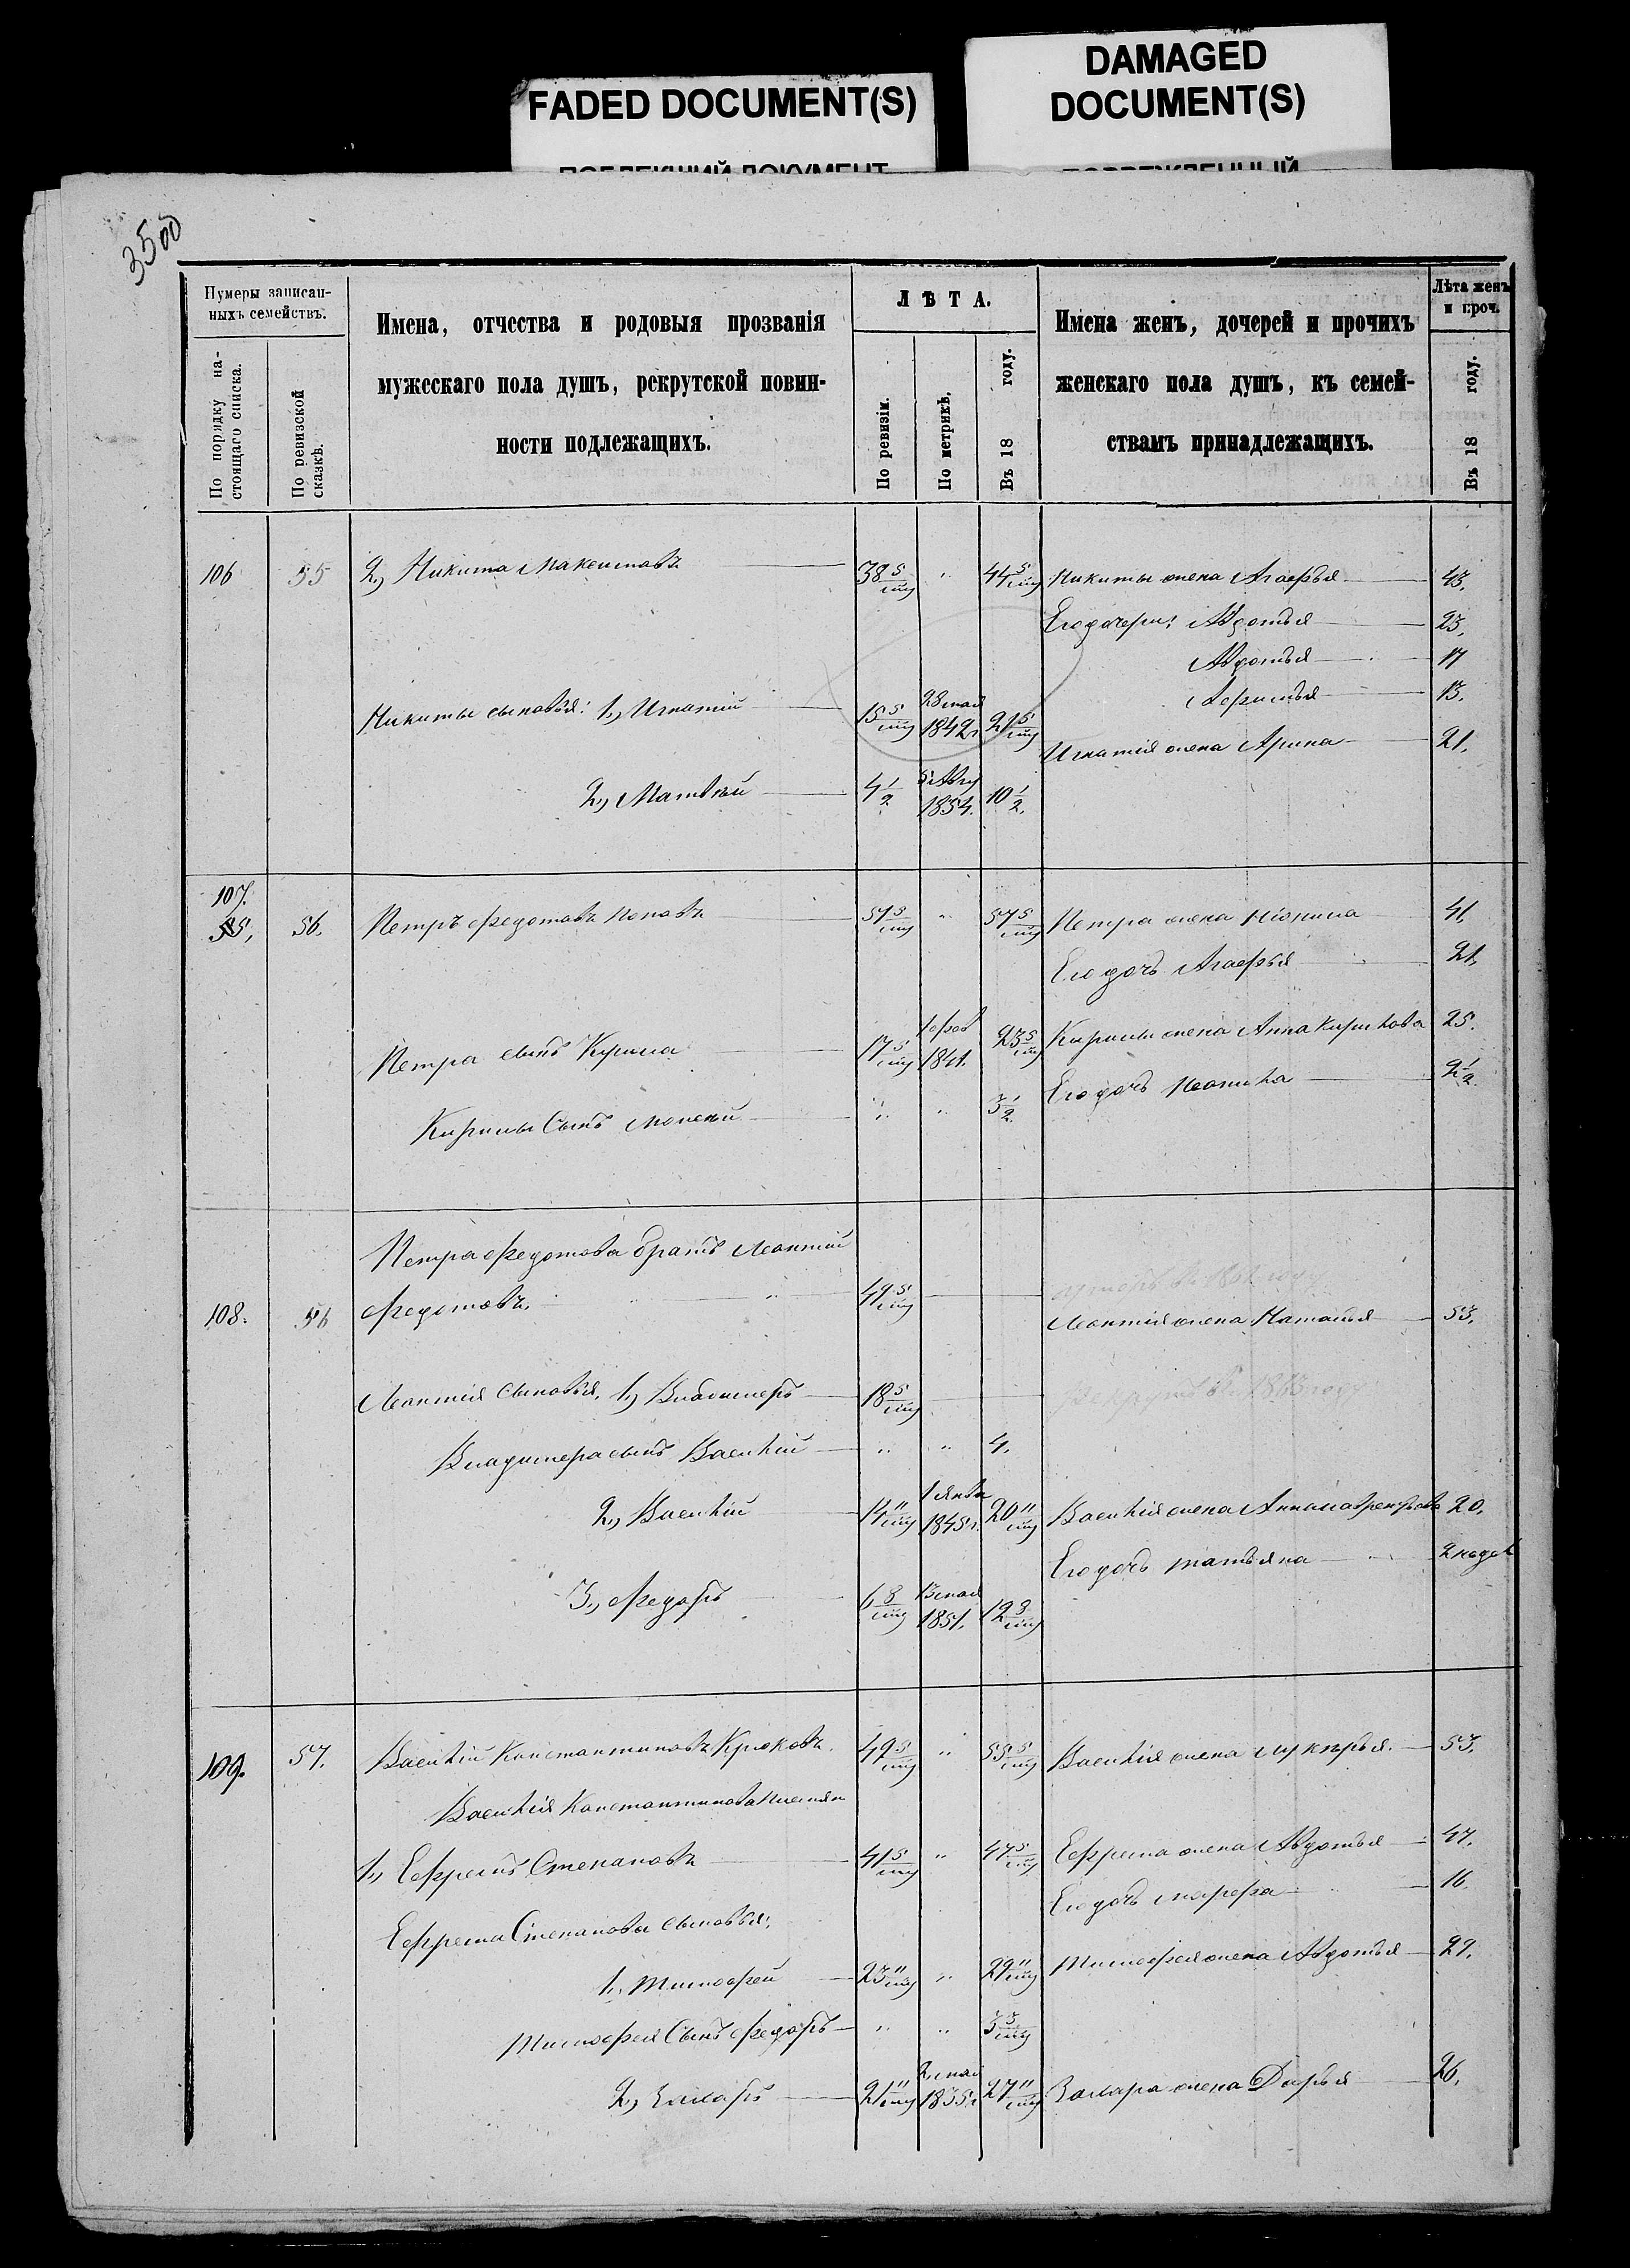 FADED DOCUMENT(S)
DAMAGED
DOCUMENT(S)
3500
Нумеры записан-
ныхъ семействъ.
По порядку на-
стоящаго списка.
По ревизской
сказкѣ.
Имена, отчества и родовыя прозванія
мужескаго пола душъ, рекрутской повин-
ности подлежащихъ.
ЛѢТА.
По ревизіи.
По метрикѣ.
Въ 18 году.
Имена женъ, дочерей и прочихъ
женскаго пола душъ, къ семей-
ствамъ принадлежащихъ.
Лѣта женъ
и проч.
Въ 18 году.
106 55 2, Никита Максимовъ 38 5 " 44 5 Никиты жена Агафья 43.
Его дочери: Авдотья 23.
Авдотья 17
13.
Никиты сыновья: 1, Игнатій 15 5 28 мая 1842 г. 21 5
Игнатія жена Арина 21.
2, Матвѣй 4 1/2 5 Авгу 1854. 10 1/2.
107.
55, 56. Петръ Федотовъ Поповъ 51 5 " 57 5 Петра жена 41.
Его дочь Агафья 21.
Петра сынъ Кирила 17 5 1 фев 1841. 23 5 Кирилы жена Анна 25.
Кирилы Сынъ " " 3 1/2 Его дочь 2 1/2.
Петра Федотова братъ Леонтій
108. 56 Федотовъ. 49 5
Леонтія жена Наталья 53.
Леонтія Сыновья, 1, Владимеръ 18 5 1863 году
Владимера сынъ Василій " " 4.
2, Василій 14 11 1 янва 1845 г. 20 11 Василія жена Анна 20.
Его дочь Татьяна 2 недел
3, Федоръ 6 8 13 мая 1851. 12 8
109. 57. Василій Константиновъ Крюковъ. 49 5 " 55 5 Василія жена Лукерья. 53.
Василія Константинова
1, Ефремъ Степановъ 41 5 " 47 5 Ефрема жена Авдотья 47.
Его дочь Марфа 16
Ефрема Степанова сыновья:
1, Тимофей 23 11 " 29 11 Тимофея жена Авдотья 29.
Тимофея Сынъ Федоръ " " 3 3
2, Захаръ 21 11 2 мая 1835 г. 27 11 Захара жена Дарья 26.